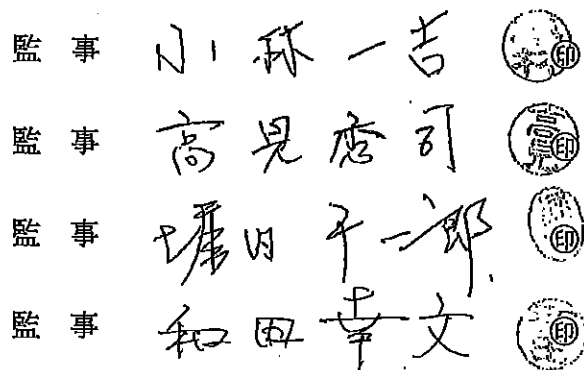 監事 小林一吉 印
監事 高見秀司 印
監事 堀内千一郎 印
監事 和田幸文 印